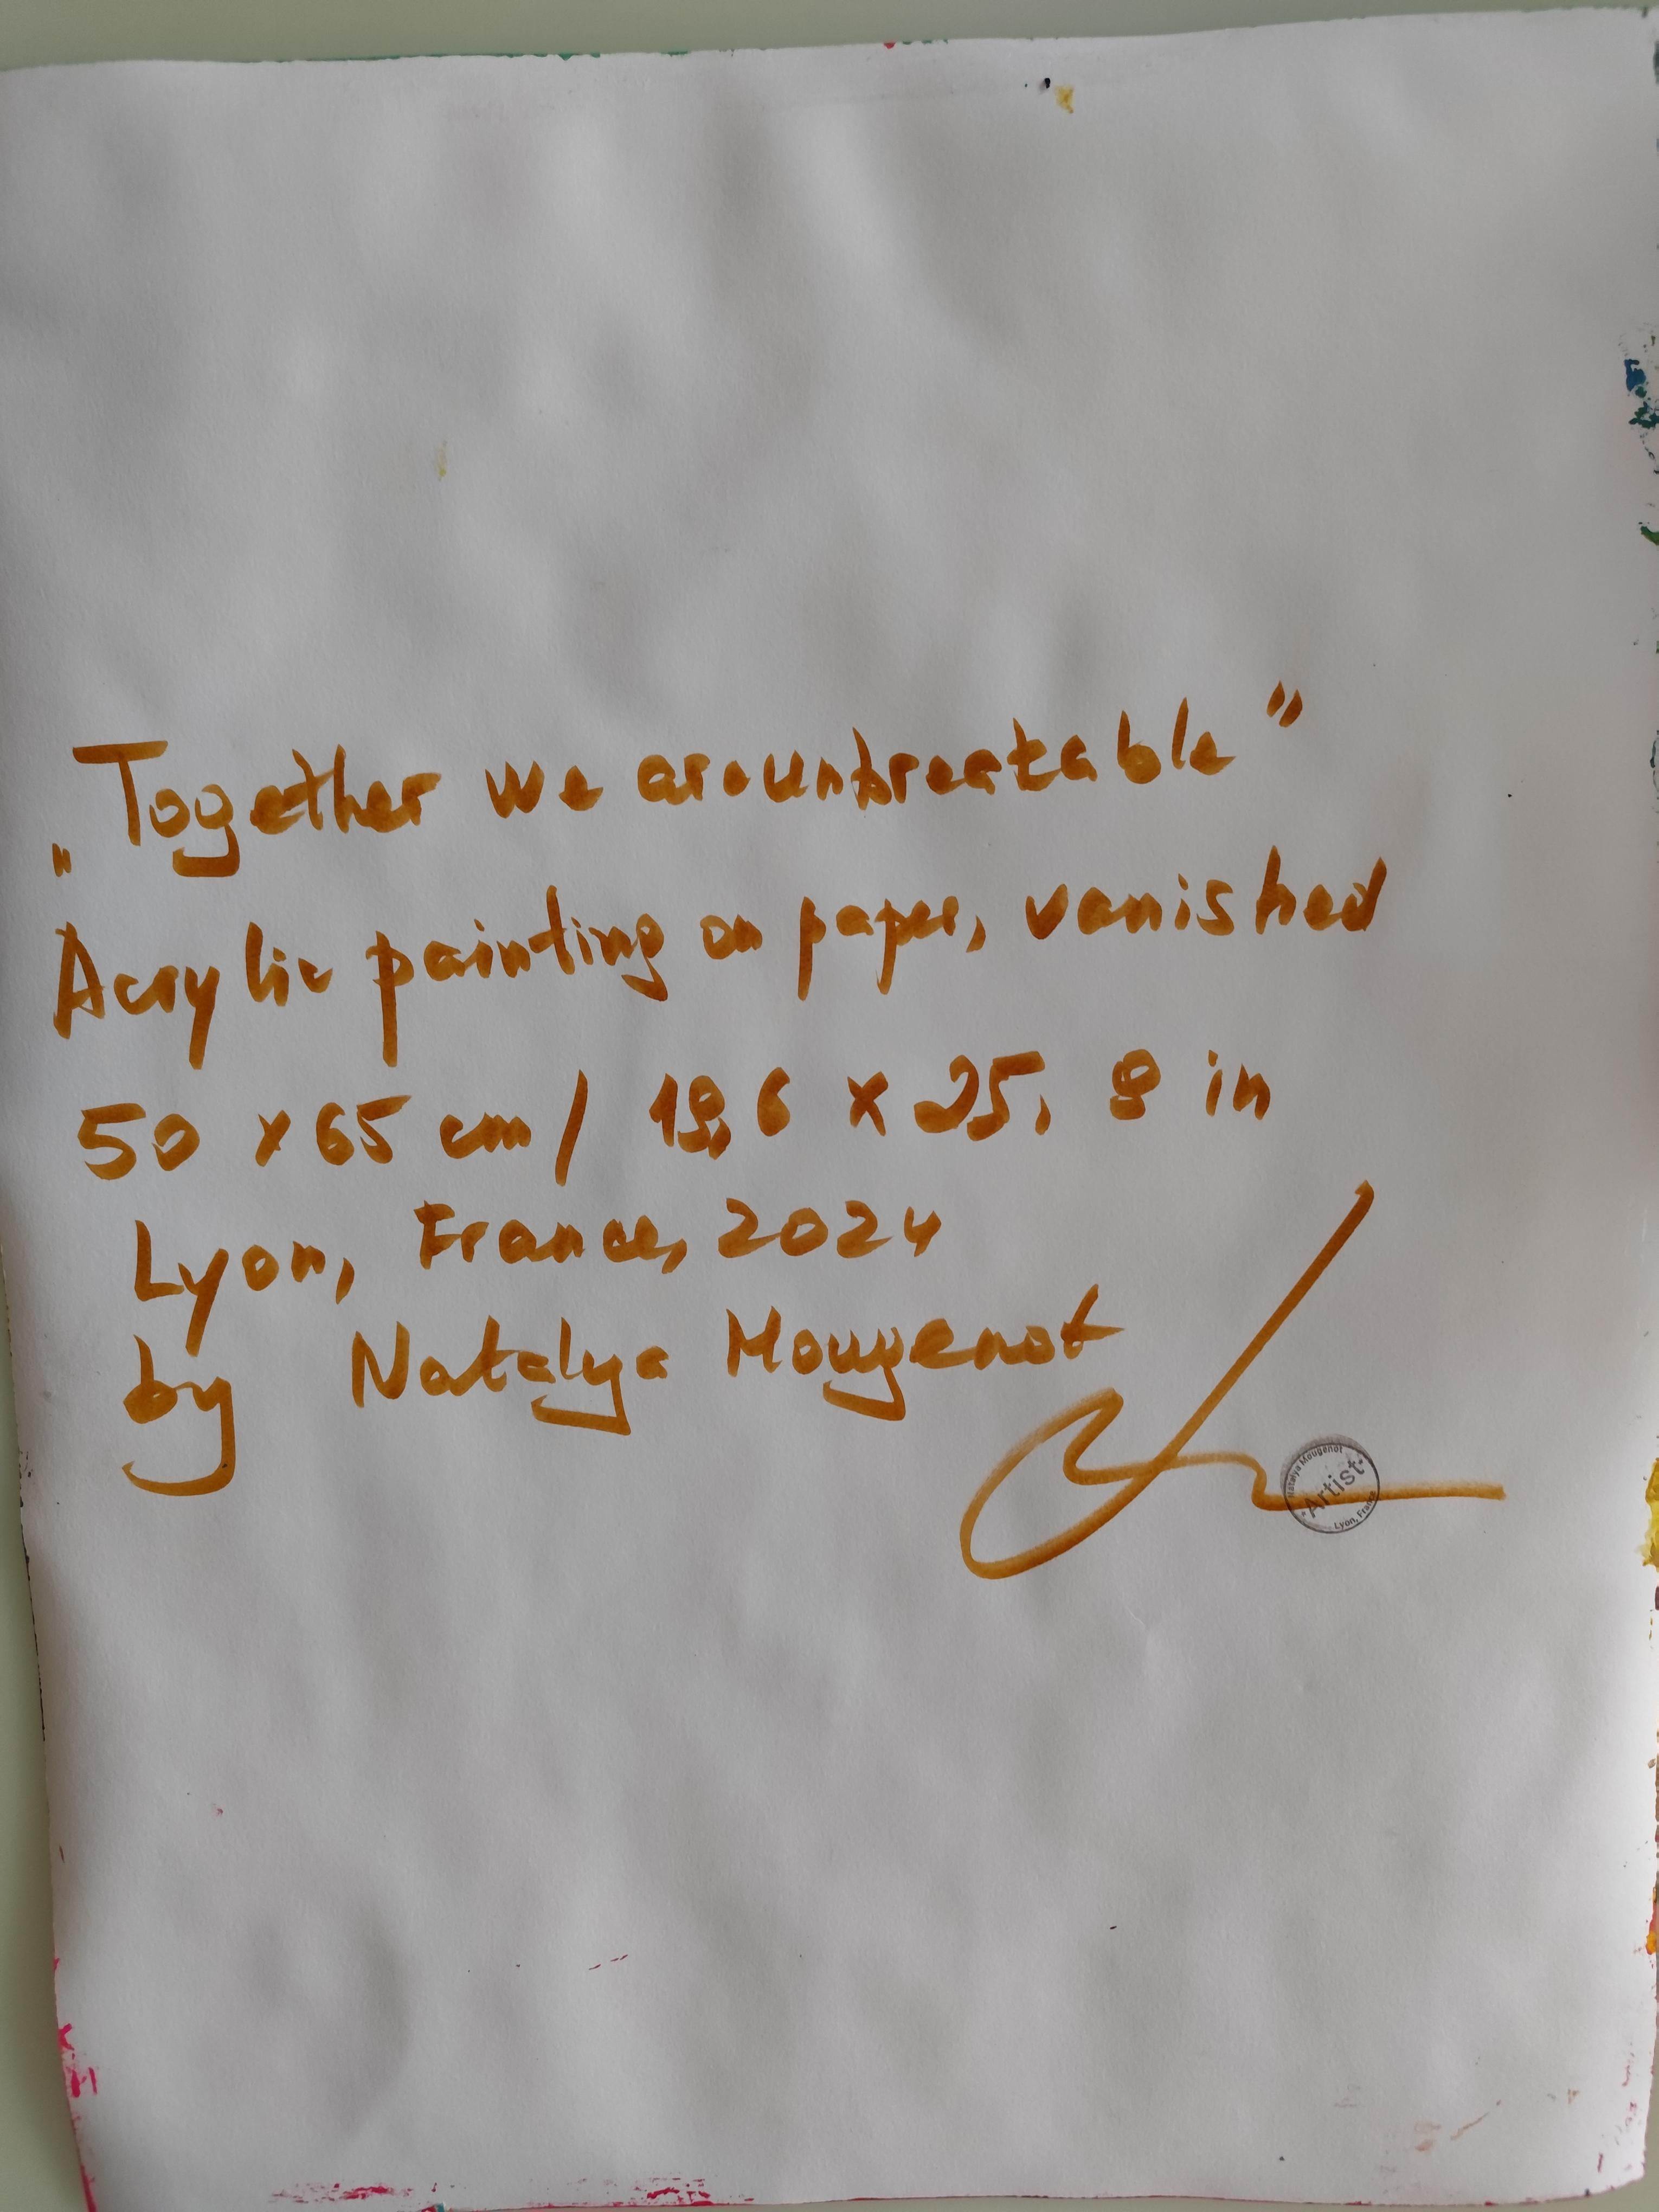 „Together we are unbreatable”
Acrylic painting on paper, vanished
50 x 65 cm / 19,6 x 25,8 in
Lyon, France, 2024
by Natalya Mougenot
Natalya Mougenot
"Artist"
Lyon, France